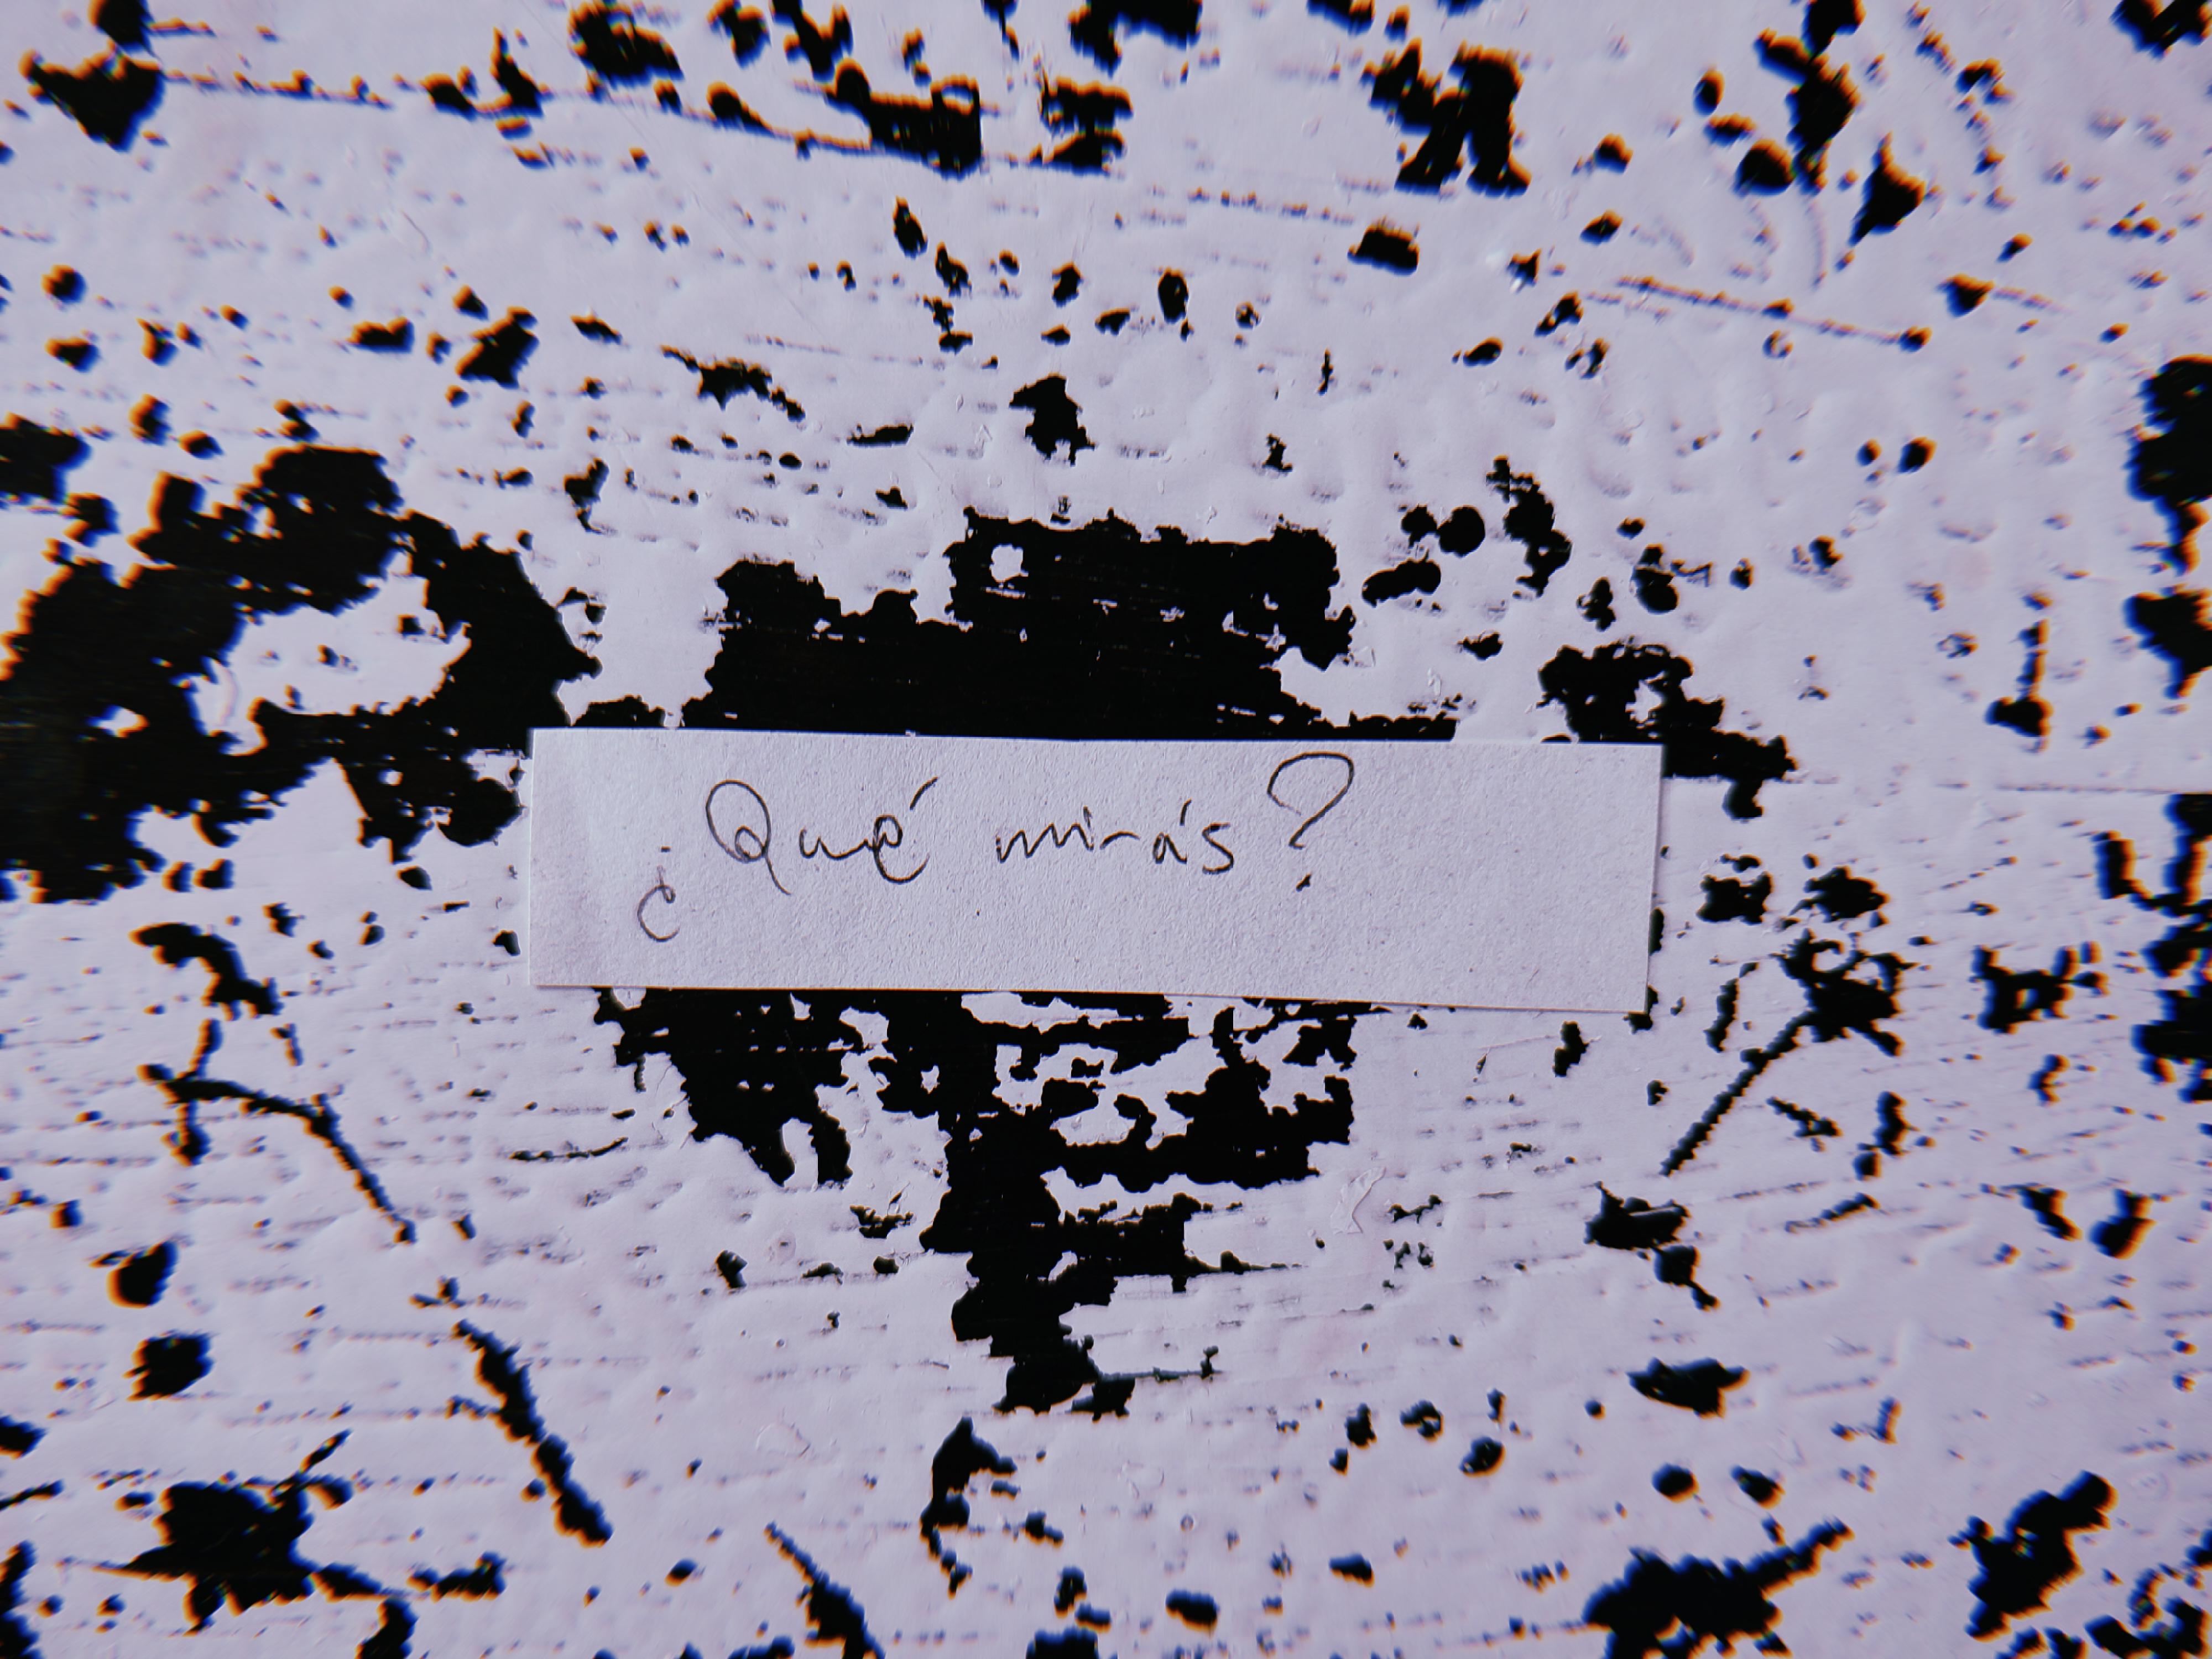 ¿Qué mirás?